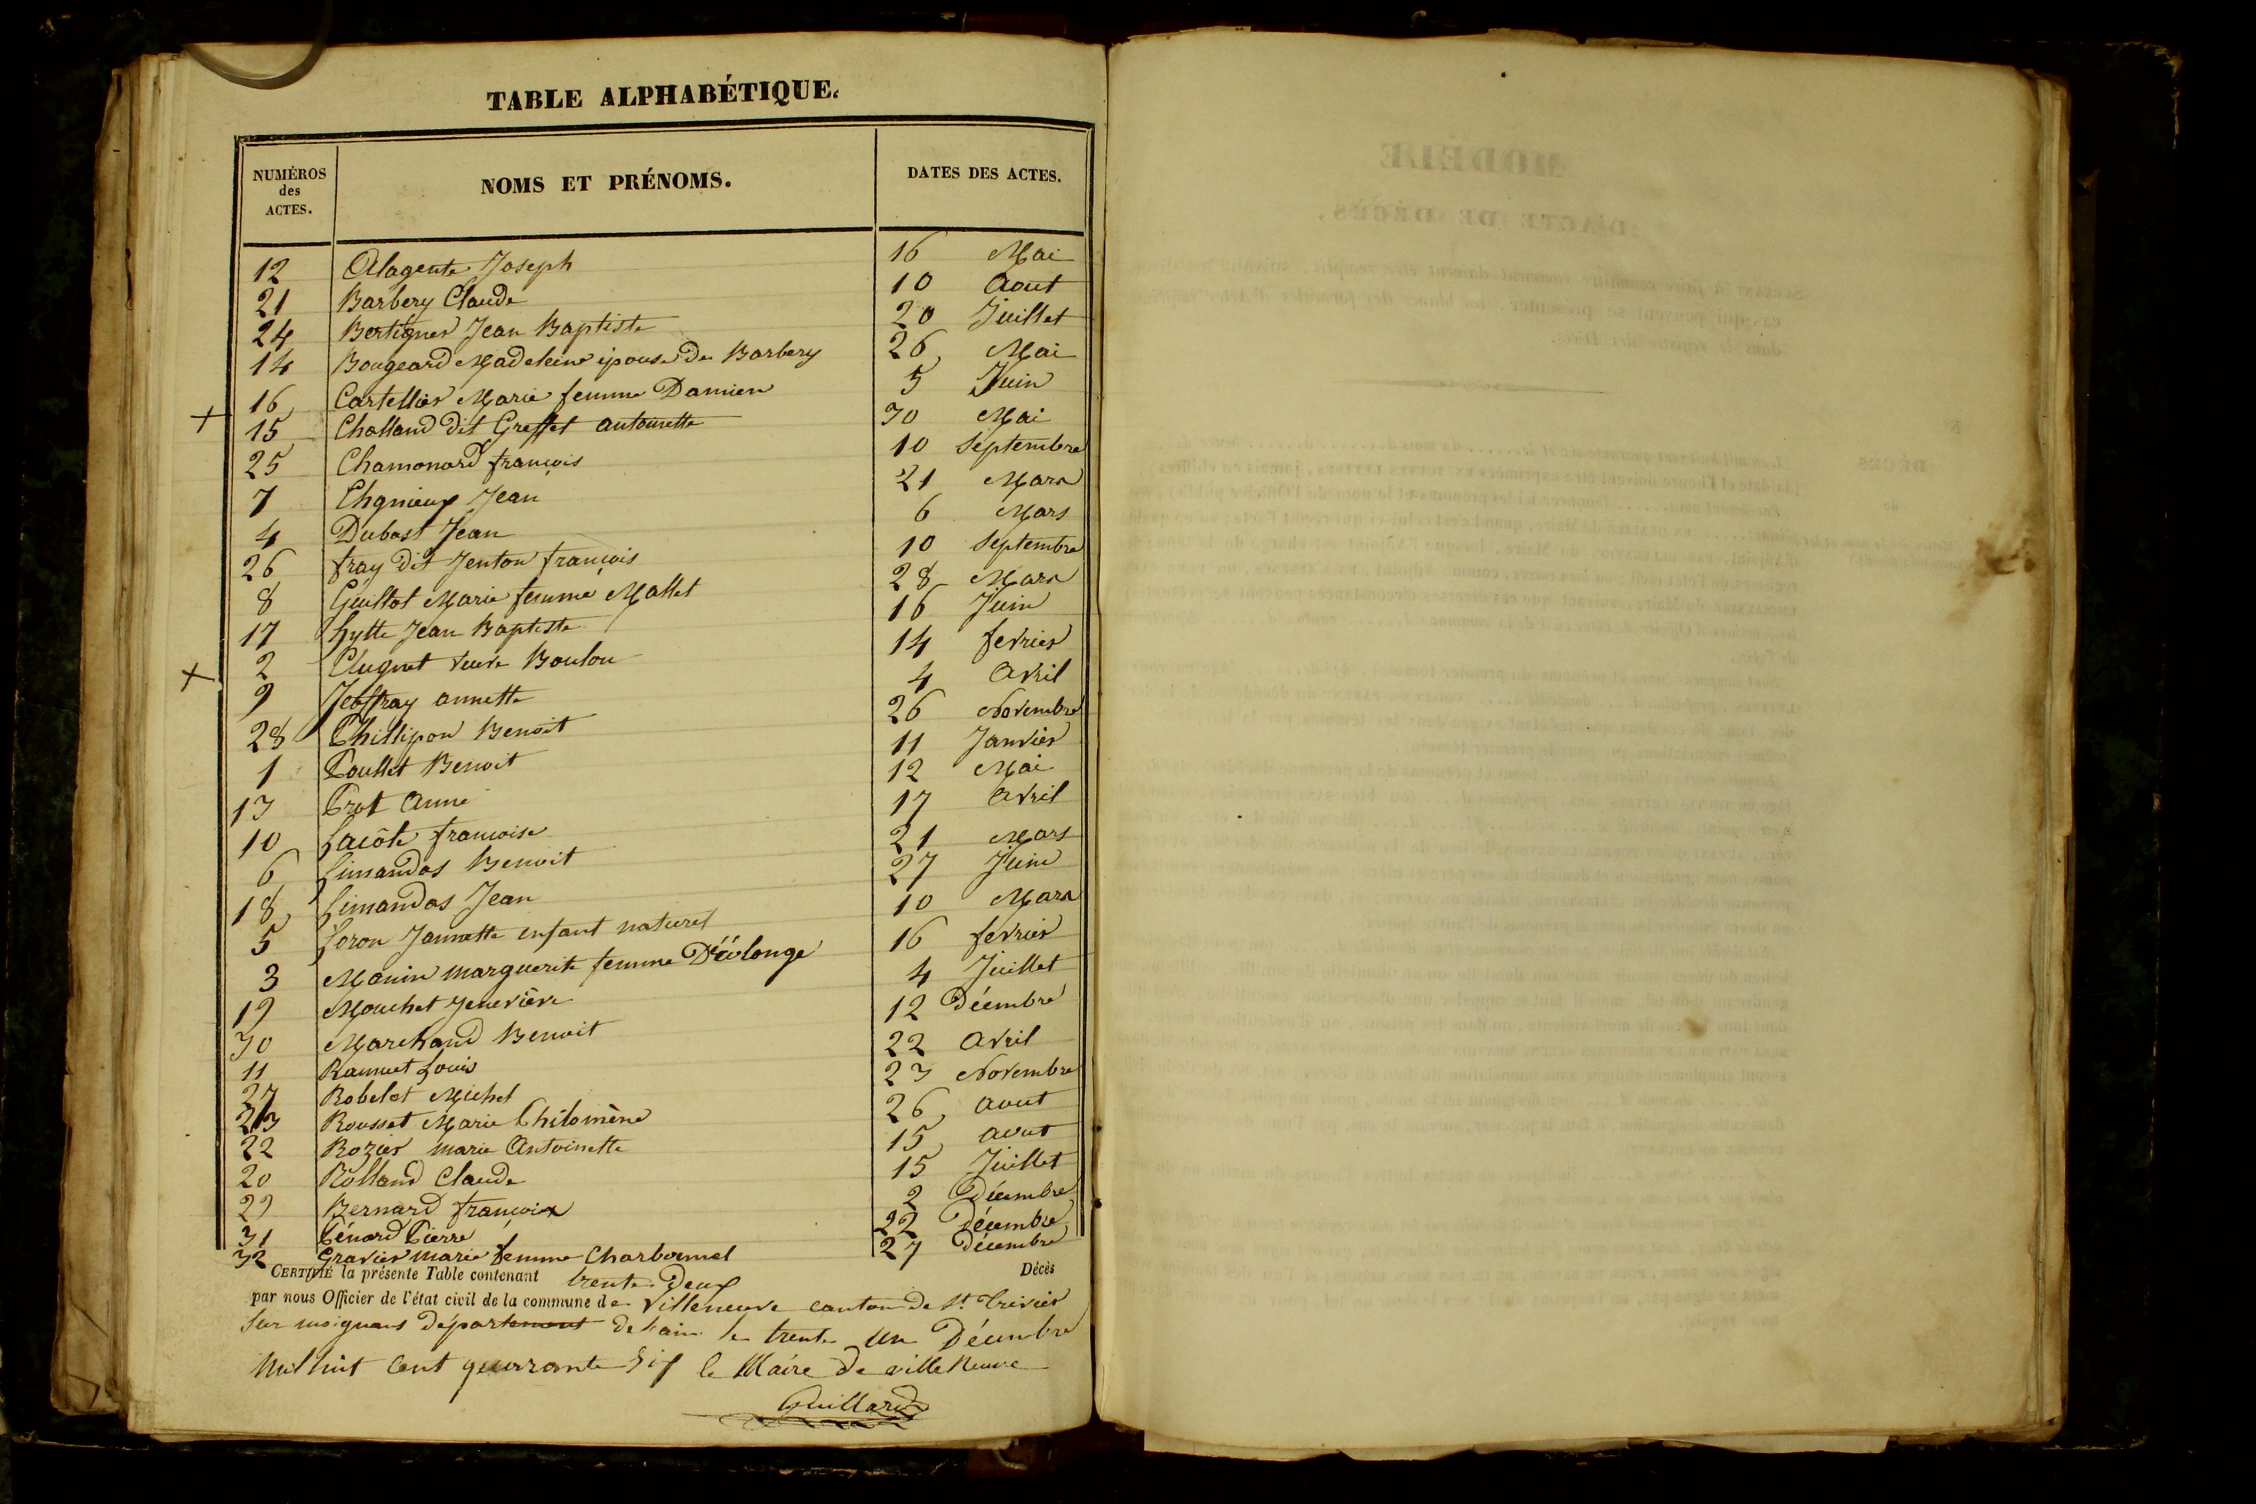 TABLE ALPHABÉTIQUE.
NUMÉROS des ACTES. NOMS ET PRÉNOMS. DATES DES ACTES.
12 Alagente Joseph 16 Mai
21 Barbery Claude 10 Aout
24 Bertignes Jean Baptiste 20 Juillet
14 Bougeard Madeleine épouse de Barbery 26 Mai
16 Cartellier Marie femme Damien 5 Juin
15 Cholland dit Greffet antoinette 30 Mai
25 Chamonard françois 10 Septembre
7 Jean 21 Mars
4 Dubost Jean 6 Mars
26 fray dit Jenton françois 10 Septembre
8 Guillot Marie femme Mallet 28 Mars
17 hytte Jean Baptiste 16 Juin
2 Clugnet veuve Boulon 14 fevrier
9 Jeoffray annette 4 Avril
28 Phillipon Benoit 26 Novembre
1 Poullet Benoit 11 Janvier
13 Prot Anne 12 Mai
10 Lacôte françoise 17 Avril
6 Limandas Benoit 21 Mars
18 Limandas Jean 27 Juin
5 Loron Jannette enfant naturel 10 Mars
3 Monin marguerite femme 16 fevrier
19 Mouchet jenevière 4 Juillet
30 Marchand Benoit 12 Décembre
11 Louis 22 Avril
27 Robelet Michel 23 Novembre
23 Rousset Marie Philomène 26 aout
22 Rozier marie Antoinette 15 aout
20 Rolland Claude 15 Juillet
29 Bernard françois 2 Décembre
31 Pénard Pierre 22 Décembre
32 Gravier marie femme Charbonnel 27 Décembre
CERTIFIÉ la présente Table contenant trente Deux Décès
par nous Officier de l'état civil de la commune de Villeneuve canton de St. Trivier
Sur moignans département de l'ain le trente un Décembre
Mil huit Cent quarrante Six le Maire de ville Neuve
Guillard